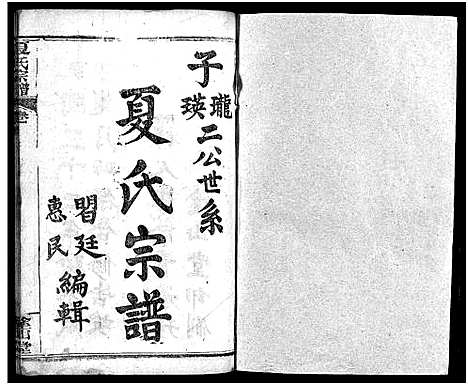 子瓏
瑛二公世系
夏氏宗譜
習廷
惠民編輯
夏氏宗譜